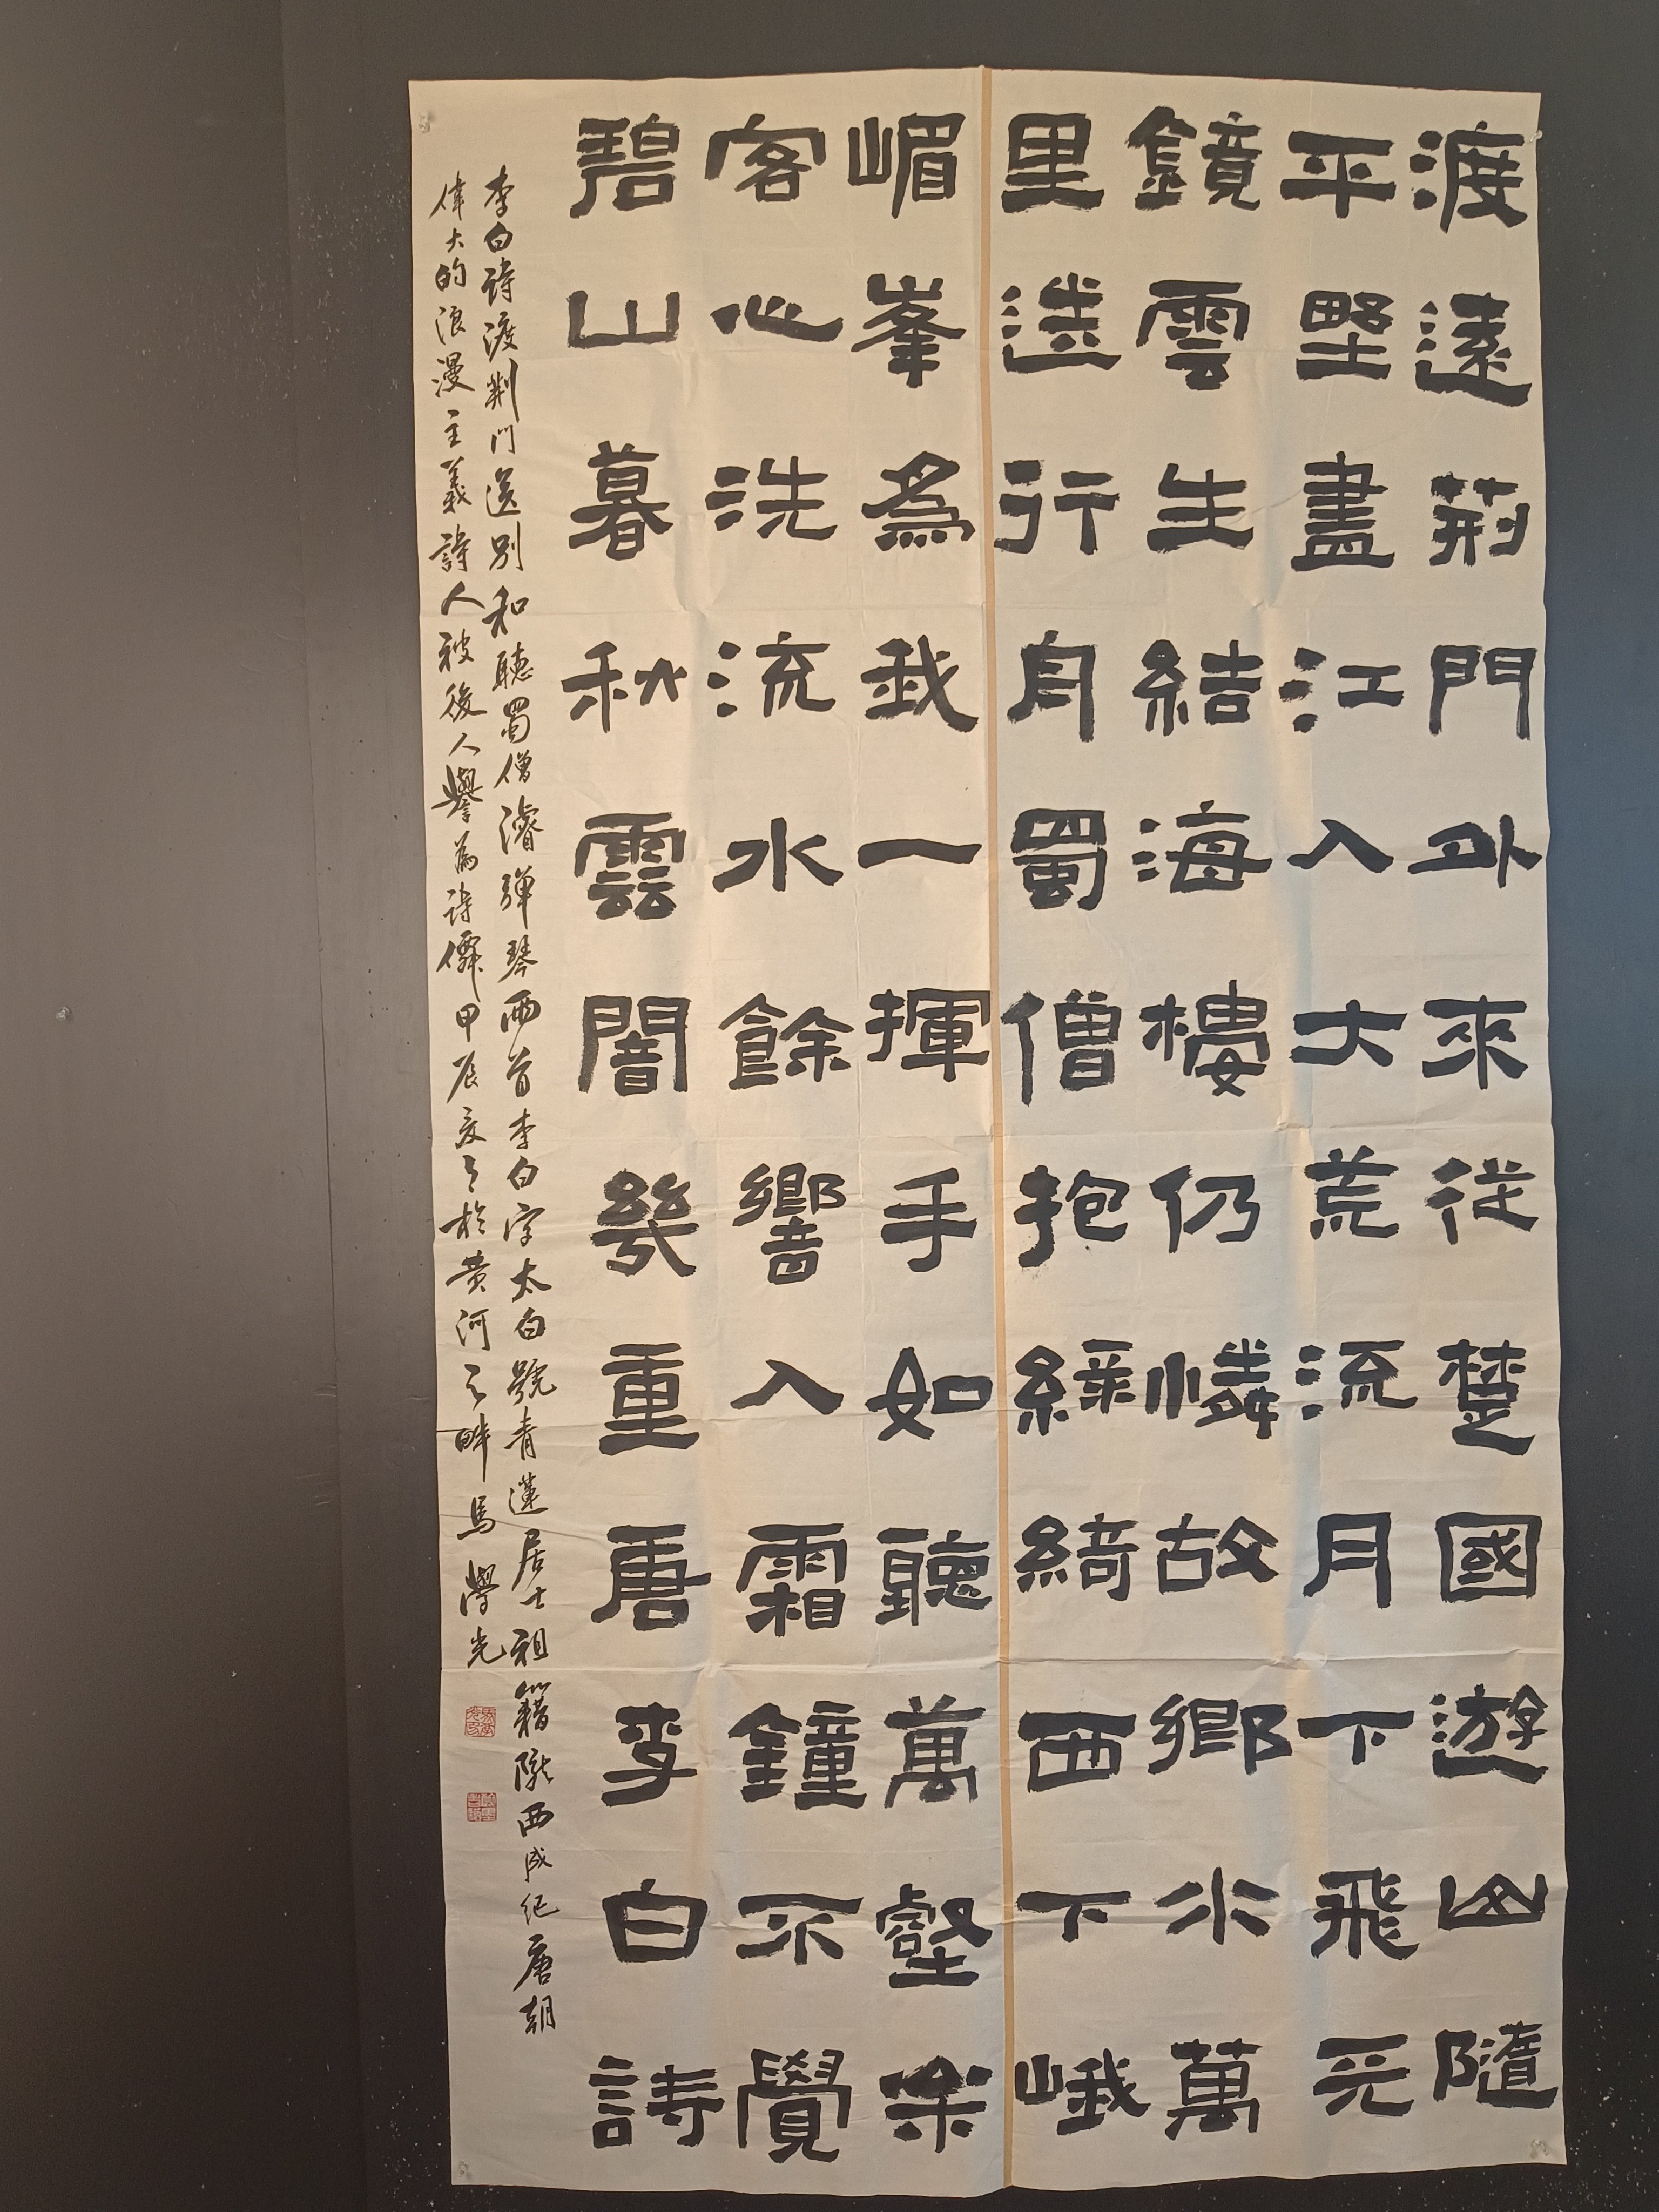 渡遠荊門外來從楚國遊山隨
平野盡江入大荒流月下飛天
鏡雲生結海樓仍憐故鄉水萬
里送行舟蜀僧抱綠綺西下峨
嵋峯為我一揮手如聽萬壑松
客心洗流水餘響入霜鐘不覺
碧山暮秋雲闇幾重唐李白詩
李白詩渡荆門送别和聽蜀僧濬弹琴两首李白字太白號青蓮居士祖籍隴西成纪唐朝
偉大的浪漫主義詩人被後人譽為詩僊甲辰夏於黄河之畔馬學光